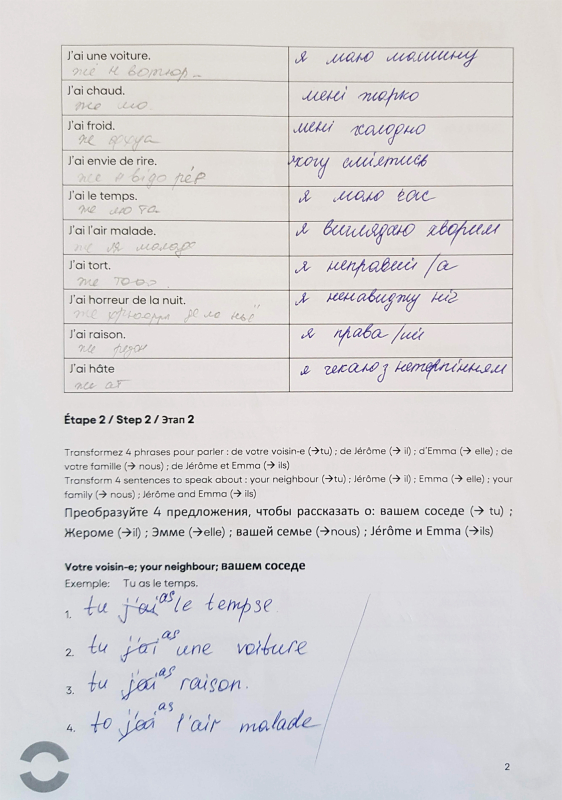 J'ai une voiture. я маю машину
же н вотюр
J'ai chaud. мені жарко
же шо.
J'ai froid. мені холодно
J'ai envie de rire. хочу сміятись
J'ai le temps. я маю час
J'ai l'air malade. я виглядаю хворим
J'ai tort. я неправий/а
J'ai horreur de la nuit. я ненавиджу ніч
J'ai raison. я права/ий
J'ai hâte я чекаю з нетерпінням
же ат
Étape 2 / Step 2 / Этап 2
Transformez 4 phrases pour parler : de votre voisin-e (→tu) ; de Jérôme (→ il) ; d'Emma (→ elle) ; de
votre famille (→ nous) ; de Jérôme et Emma (→ ils)
Transform 4 sentences to speak about : your neighbour (→tu) ; Jérôme (→ il) ; Emma (→ elle) ; your
family (→ nous) ; Jérôme and Emma (→ ils)
Преобразуйте 4 предложения, чтобы рассказать о: вашем соседе (→ tu) ;
Жероме (→il) ; Эмме (→elle) ; вашей семье (→nous) ; Jérôme и Emma (→ils)
Votre voisin-e; your neighbour; вашем соседе
Exemple: Tu as le temps.
1. tu j'ai as le tempse
2. tu j'ai as une voiture
3. tu j'ai as raison.
4. to j'ai as l'air malade
2